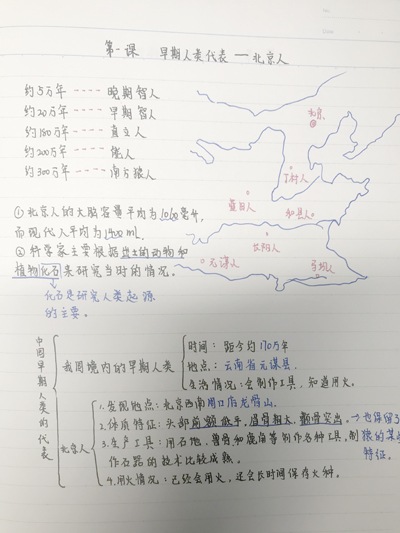 第一课 早期人类代表——北京人
约5万年 ---- 晚期智人
约20万年 ---- 早期智人
约180万年 ---- 直立人
约200万年 ---- 能人
约300万年 ---- 南方猿人
北京
丁村人
蓝田人
和县人
长阳人
元谋人
马坝人
①北京人的大脑容量平均为1060毫升,
而现代人平均为1400mL.
②科学家主要根据出土的动物和
植物化石来研究当时的情况。
化石是研究人类起源
的主要。
中国早期人类的代表
我国境内的早期人类
时间:距今约170万年
地点:云南省元谋县.
生活情况:会制作工具,知道用火。
北京人
1.发现地点:北京西南周口店龙骨山.
2.体质特征:头部前额低平,眉骨粗大,颧骨突出。→也保留了
猿的某些
特征。
3.生产工具:用石块、兽骨和鹿角等制作各种工具,制
作石器的技术比较成熟。
4.用火情况:已经会用火,还会长时间保存火种。